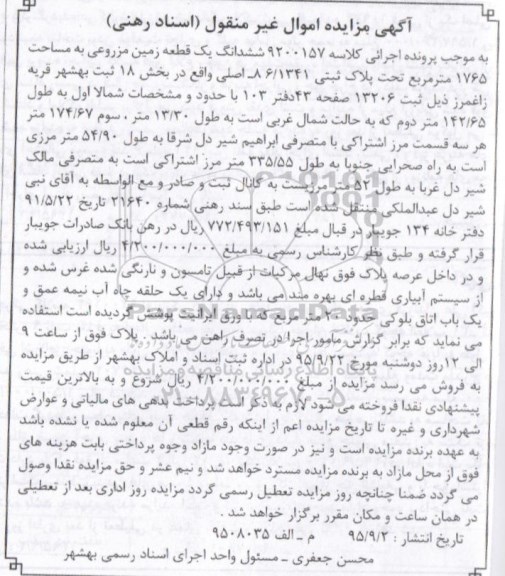 آگهی مزایده اموال غیر منقول (اسناد رهنی)
به موجب پرونده اجرائی کلاسه ۹۲۰۰۱۵۷ ششدانگ یک قطعه زمین مزروعی به مساحت
۱۷۶۵ مترمربع تحت پلاک ثبتی ۸۶/۱۳۴۱ـ اصلی واقع در بخش ۱۸ ثبت بهشهر قریه
زاغمرز ذیل ثبت ۱۳۲۰۶ صفحه ۴۳دفتر ۱۰۳ با حدود و مشخصات شمالا اول به طول
۱۴۲/۶۵ متر دوم که به حالت شمال غربی است به طول ۱۳/۳۰ متر ، سوم ۱۷۴/۶۷ متر
هر سه قسمت مرز اشتراکی با متصرفی ابراهیم شیر دل شرقا به طول ۵۴/۹۰ متر مرزی
است به راه صحرایی جنوبا به طول ۳۳۵/۵۵ متر مرز اشتراکی است به متصرفی مالک
شیر دل غربا به طول ۵۲ متر مرزیست به کانال ثبت و صادر و مع الواسطه به آقای نبی
شیر دل عبدالملکی منتقل شده است طبق سند رهنی شماره ۲۱۶۴۰ تاریخ ۹۱/۵/۲۲
دفتر خانه ۱۳۴ جویبار در قبال مبلغ ۷۷۲/۴۹۳/۱۵۱ ریال در رهن بانک صادرات جویبار
قرار گرفته و طبق نظر کارشناس رسمی به مبلغ ۴/۲۰۰/۰۰۰/۰۰۰ ریال ارزیابی شده
و در داخل عرصه پلاک فوق نهال مرکبات از قبیل تامسون و نارنگی شده غرس شده و
از سیستم آبیاری قطره ای بهره مند می باشد و دارای یک حلقه چاه آب نیمه عمق و
یک باب اتاق بلوکی حدود ۲۰ متر مربع که با ورق ایرانیت پوشش گردیده است استفاده
می نماید که برابر گزارش مأمور اجرا در تصرف راهن می باشد . پلاک فوق از ساعت ۹
الی ۱۲روز دوشنبه مورخ ۹۵/۹/۲۲ در اداره ثبت اسناد و املاک بهشهر از طریق مزایده
به فروش می رسد مزایده از مبلغ ۴/۲۰۰/۰۰۰/۰۰۰ ریال شروع و به بالاترین قیمت
پیشنهادی نقدا فروخته می شود لازم به ذکر است پرداخت بدهی های مالیاتی و عوارض
شهرداری و غیره تا تاریخ مزایده اعم از اینکه رقم قطعی آن معلوم شده یا نشده باشد
به عهده برنده مزایده است و نیز در صورت وجود مازاد وجوه پرداختی بابت هزینه های
فوق از محل مازاد به برنده مزایده مسترد خواهد شد و نیم عشر و حق مزایده نقدا وصول
می گردد ضمنا چنانچه روز مزایده تعطیل رسمی گردد مزایده روز اداری بعد از تعطیلی
در همان ساعت و مکان مقرر برگزار خواهد شد .
تاریخ انتشار : ۹۵/۹/۲ م ـ الف ۹۵۰۸۰۳۵
محسن جعفری ـ مسئول واحد اجرای اسناد رسمی بهشهر